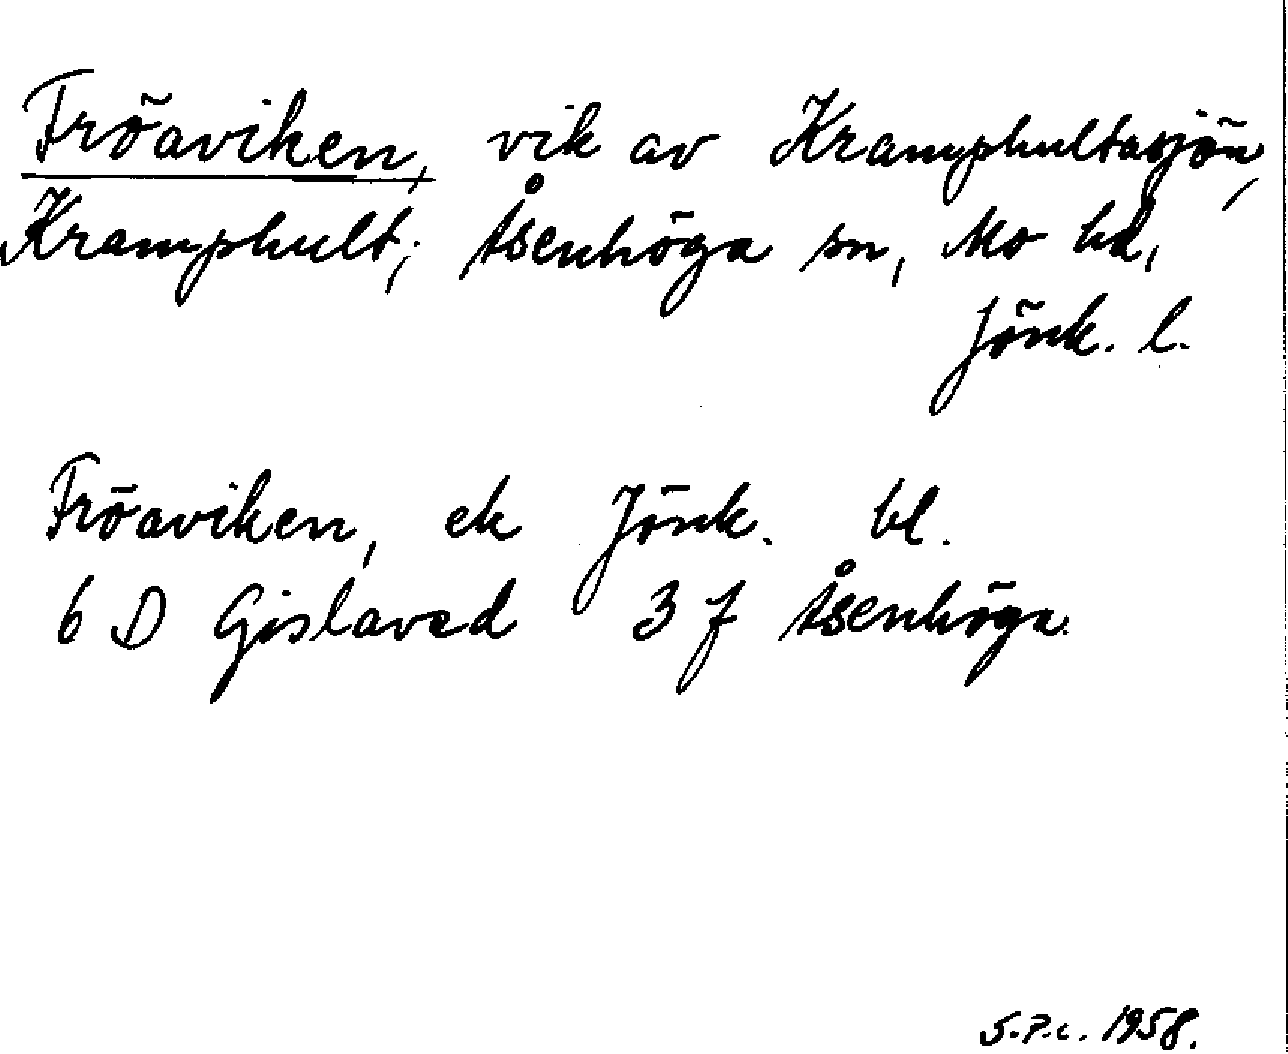 Fröaviken, vik av Kramphultasjön,
Kramphult; Åsenhöga sn, Mo hd,
Jönk. l.
Fröaviken, ek Jönk. bl.
6 D Gislaved 3 f Åsenhöga.
S.P.c. 1958.